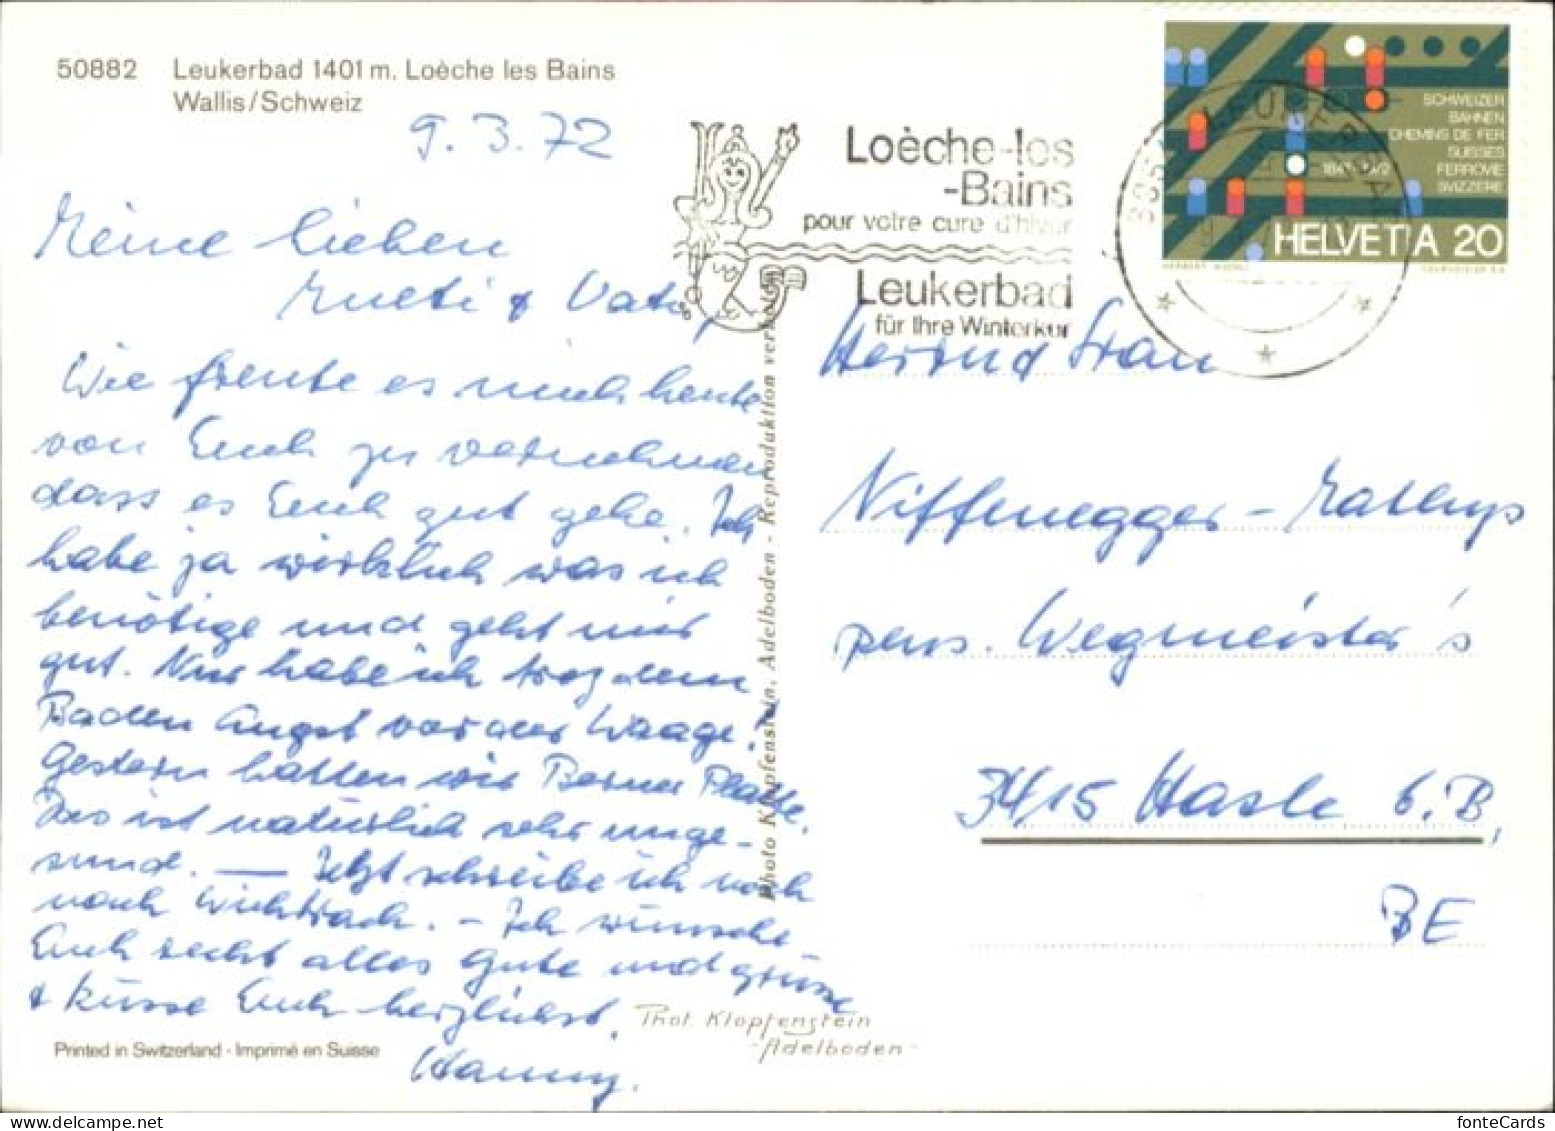 50882 Leukerbad 1401 m. Loèche les Bains
Wallis/Schweiz
9.3.72
Meine lieben
Mueti & Vati,
Wie freute es mich heute
von Euch zu vernehmen
dass es Euch gut gehe. Ich
habe ja wirklich was ich
benötige und geht mir
gut. Nur habe ich trozdem
Baden Angst vor der Waage!
Gestern hatten wir Berner Platte.
Das ist natürlich sehr unge-
sund. — Jetzt schreibe ich noch
nach Wichtrach. - Ich wünsche
Euch recht alles Gute und grüsse
& küsse Euch herzlichst.
Hanny.
Printed in Switzerland - Imprimé en Suisse
Phot. Klopfenstein
- Adelboden -
Photo Klopfenstein, Adelboden - Reproduktion verboten
Loèche-les
-Bains
pour votre cure d'hiver
Leukerbad
für Ihre Winterkur
LEUKERBAD
SCHWEIZER
BAHNEN
CHEMINS DE FER
SUISSES
FERROVIE
SVIZZERE
HELVETIA 20
Herr und Frau
Niffenegger-
pens. Wegmeister's
3415 Hasle b. B.
BE
fonteCards